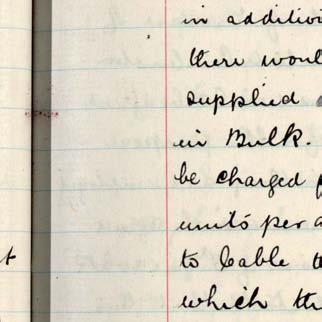 in additi
there woul
supplied
in Bulk.
be charged
units per a
to cable t
which th